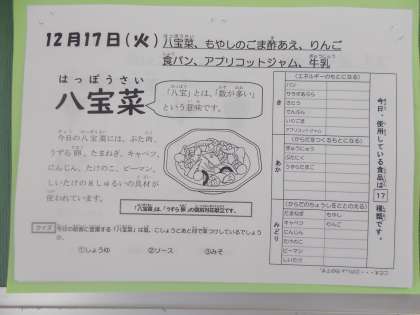 12月17日(火) 八宝菜、もやしのごま酢あえ、りんご
食パン、アプリコットジャム、牛乳
はっぽうさい
八宝菜
「八宝」とは、「数が多い」
という意味です。
今日の八宝菜には、ぶた肉、
うずら卵、たまねぎ、キャベツ、
にんじん、たけのこ、ピーマン、
しいたけの8しゅるいの具材が
使われています。
「八宝菜」は、「うずら卵」の個別対応献立です。
クイズ 今日の給食に登場する「八宝菜」は塩、こしょうとあと何で味つけしているでしょう
①しょうゆ ②ソース ③みそ
今日、使用している食品は17種類です。
(エネルギーのもとになる)
き
パン
さとう
でんぷん
アプリコットジャム
(からだをつくるもとになる)
あか
ぎゅうにゅう
ぶたにく
うずらたまご
(からだのちょうしをととのえる)
みどり
たまねぎ もやし
キャベツ りんご
にんじん
たけのこ
ピーマン
しいたけ